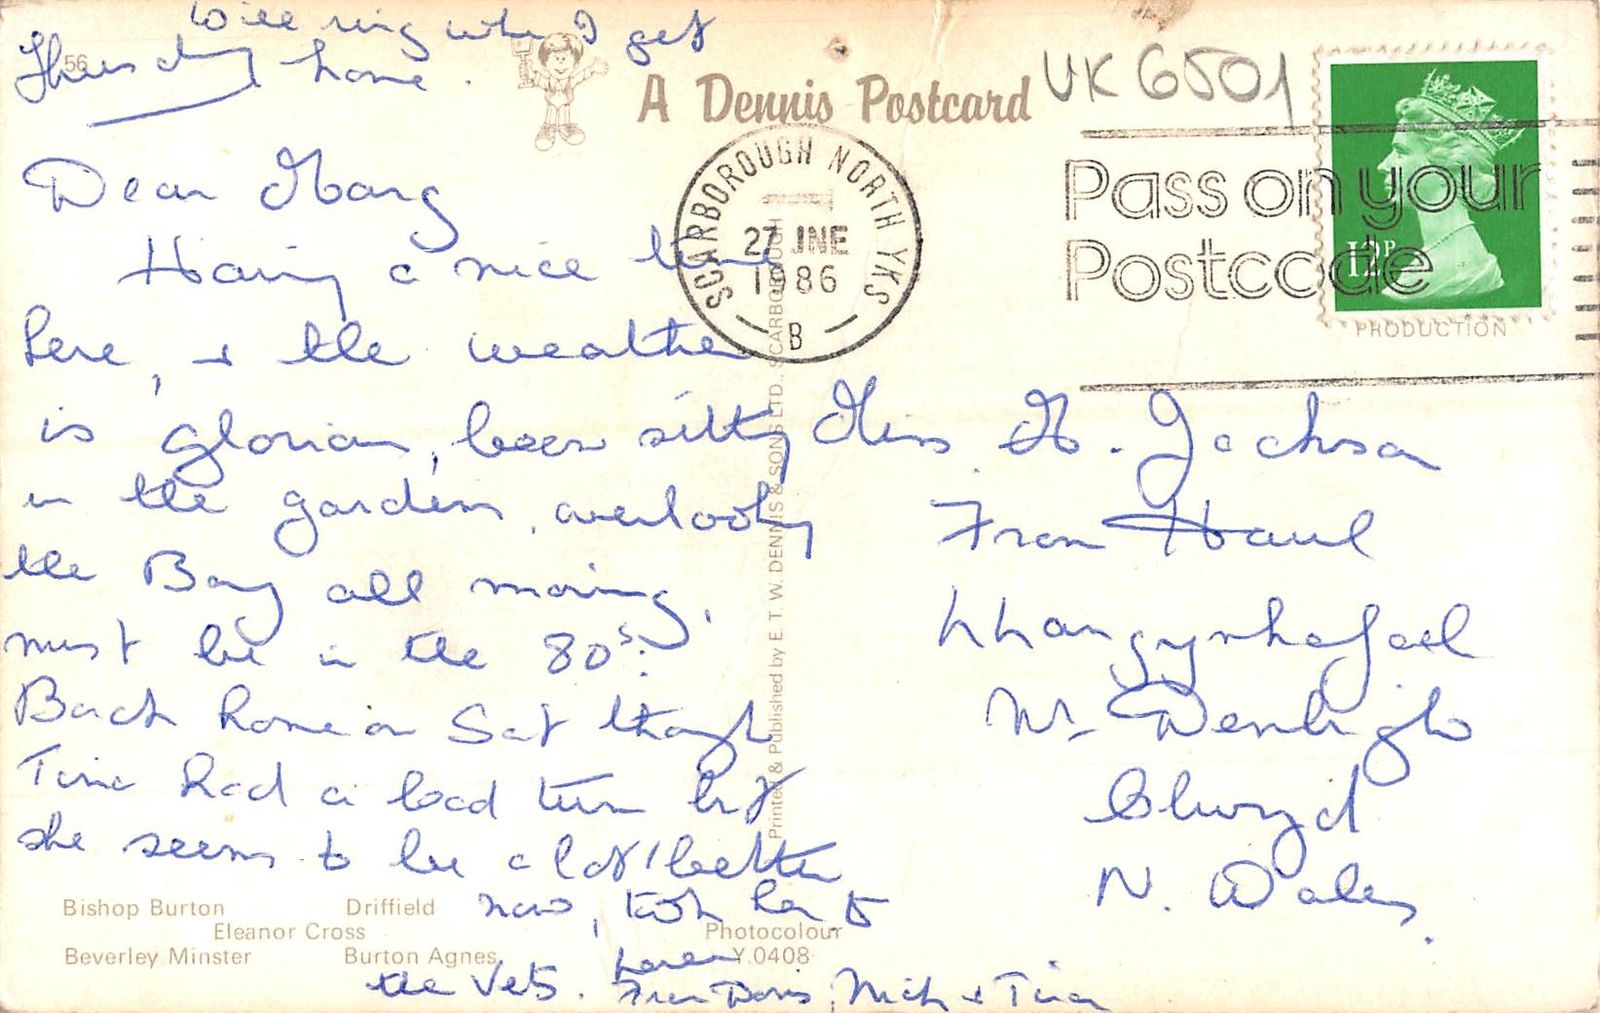 Will ring when I get
Thursday home.
56
A Dennis Postcard
UK 6501
SCARBOROUGH NORTH YKS
27 JNE
1986
B
Pass on your
Postcode
12P
PRODUCTION
Dear Marg
Having a nice time
here, & the weather
is glorious, been sitting
in the gardens, overlooking
the Bay all morning,
must be in the 80s.
Back home on Sat though
Tina had a bad turn but
she seems to be a lot better
now, took her to
the Vets. Love
From Doris, Nick & Tina
Miss M. Jackson
Fron Haul
Llangynhafael
Nr Denbigh
Clwyd
N. Wales.
Printed & Published by E. T. W. DENNIS & SONS LTD., SCARBOROUGH
Bishop Burton Driffield
Eleanor Cross
Beverley Minster Burton Agnes
Photocolour
Y.0408